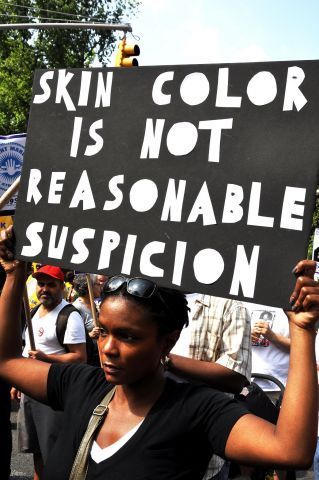 SKIN COLOR
IS NOT
REASONABLE
SUSPICION